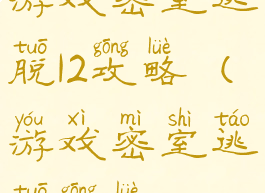 游戏密室逃
tuō gōng lüè
脱12攻略（
yóu xì mì shì táo
游戏密室逃
tuō gōng lüè